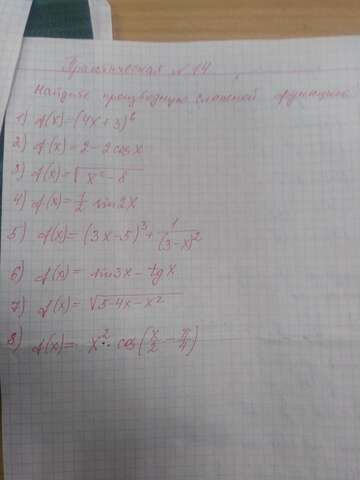 Практическая №14
Найдите производную сложной функции
1) f(x)=(4x+3)⁶
2) f(x)=2-2cosx
3) f(x)=√(x²-8)
4) f(x)=1/2 sin2x
5) f(x)=(3x-5)³+1/(3-x)²
6) f(x)= sin3x-tgx
7) f(x)=√(5-4x-x²)
8) f(x)= x²·cos(x/2-π/4)